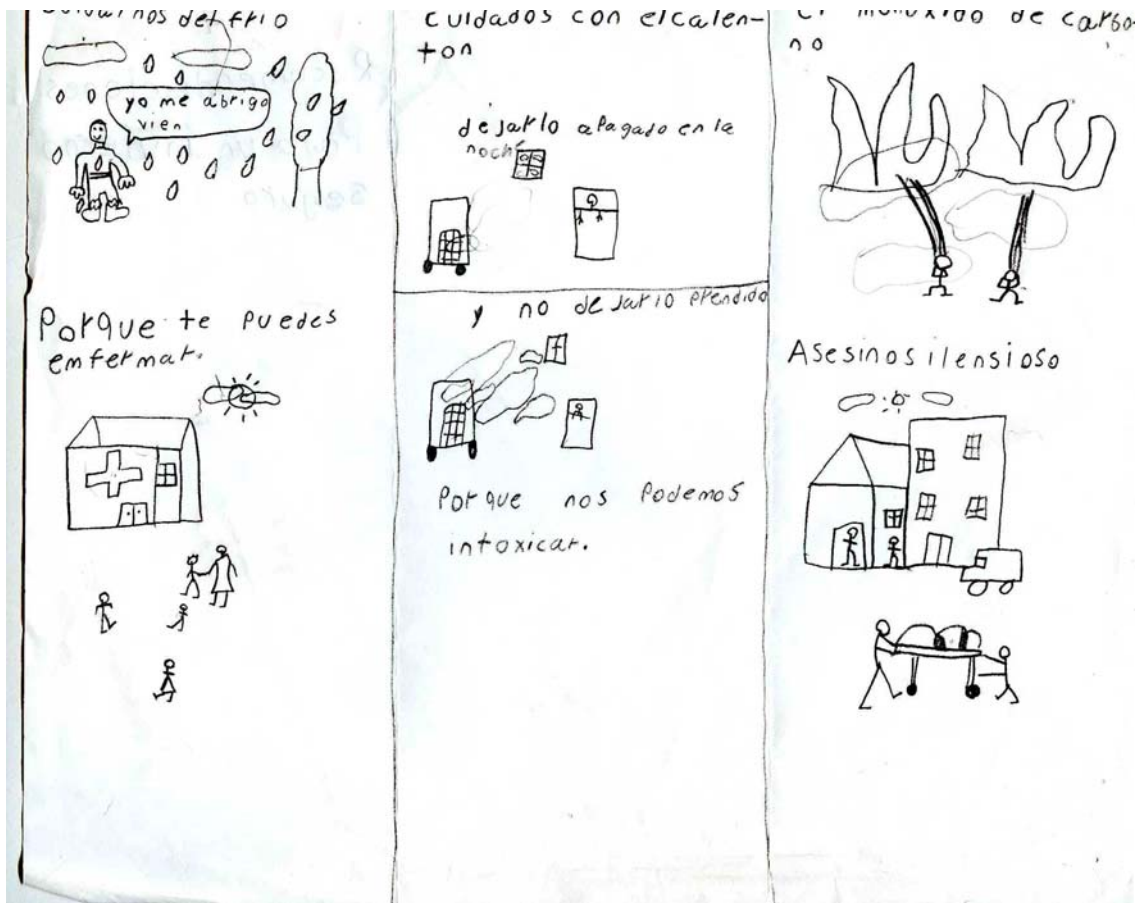 del frio
yo me abrigo
vien
Porque te puedes
enfermar.
cuidados con elcalen-
ton
dejarlo apagado en la
noche
y no dejarlo prendido
Porque nos Podemos
intoxicar.
El monoxido de carbo-
no
Asesinos ilensioso